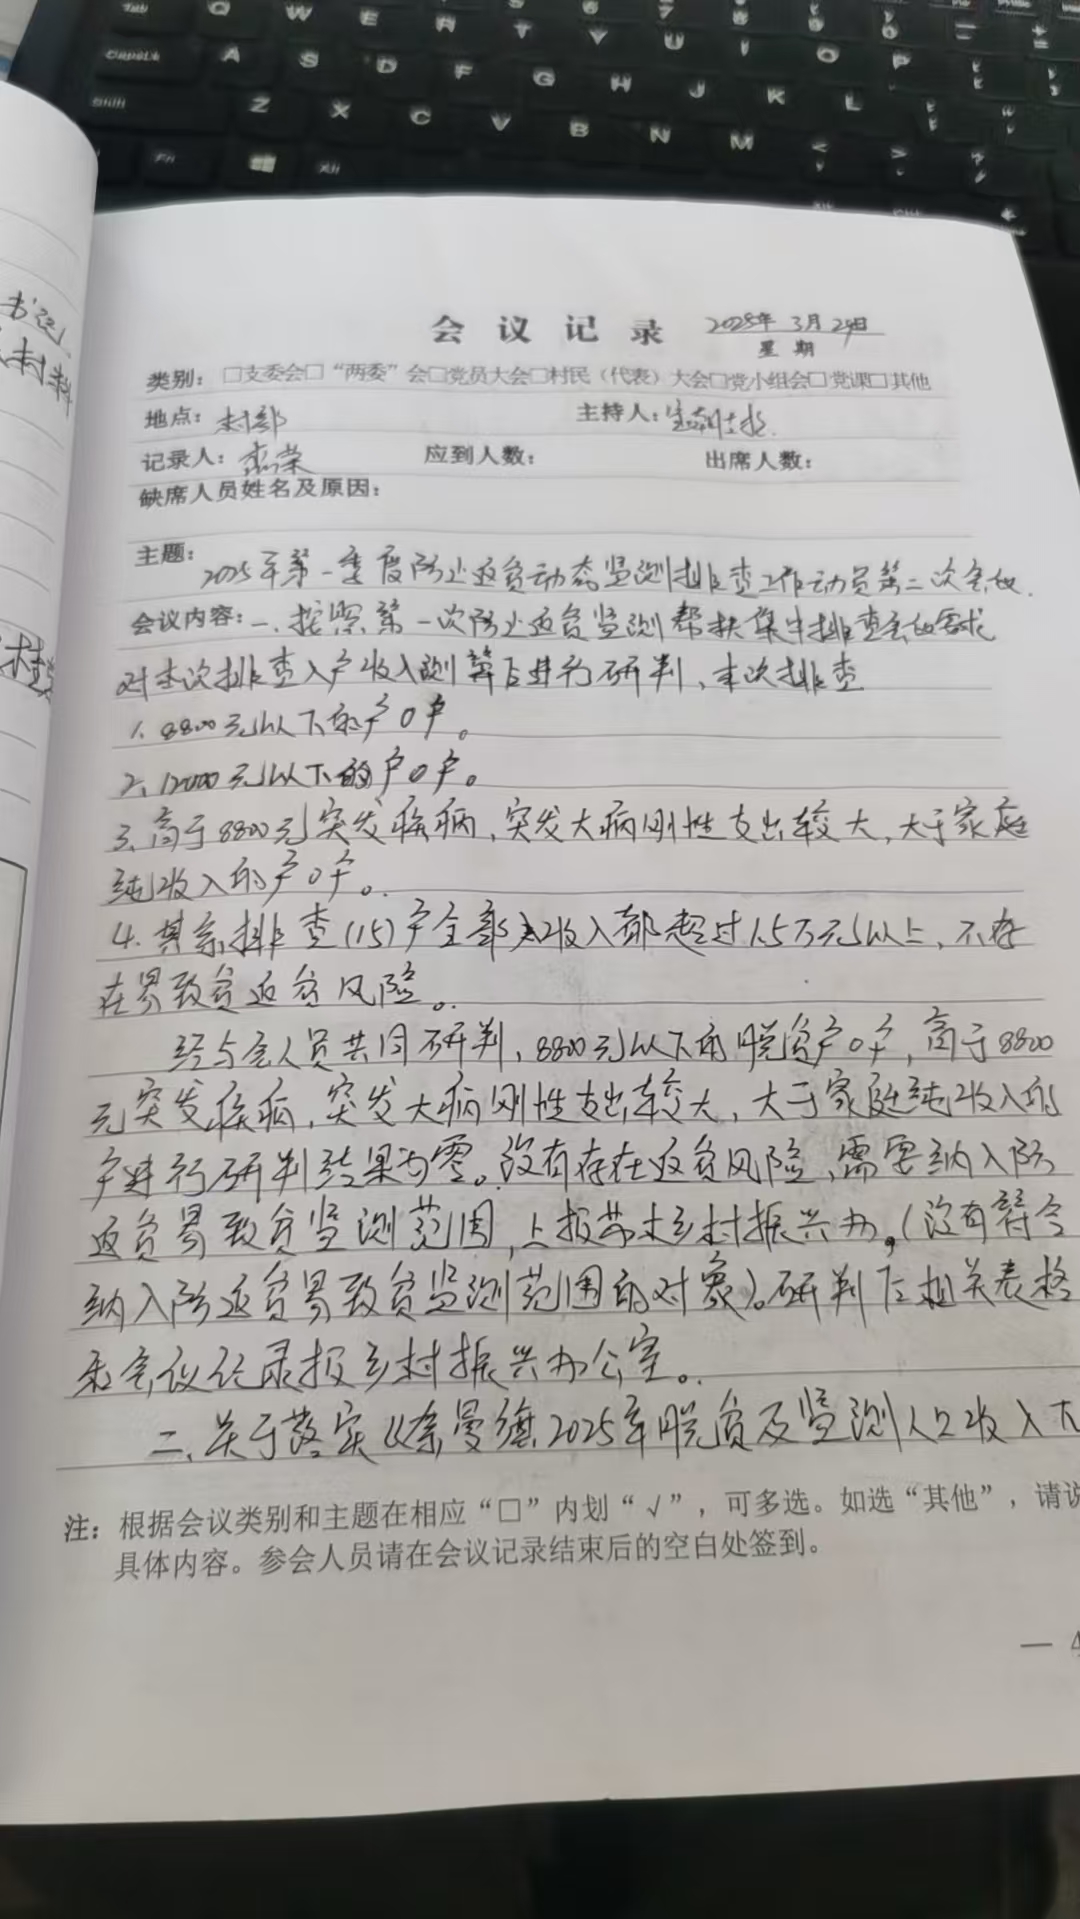 会议记录 2025年3月24日
星期
类别：□支委会□“两委”会□党员大会□村民（代表）大会□党小组会□党课□其他
地点：村部 主持人：
记录人： 应到人数： 出席人数：
缺席人员姓名及原因：
主题：2025年第一季度防止返贫动态监测排查工作动员第二次会议.
会议内容：一、按照第一次防止返贫监测帮扶集中排查会的需求
对本次排查入户收入测算后进行研判、本次排查
1、8800元以下的户0户。
2、12000元以下的户0户。
3、高于8800元突发疾病，突发大病刚性支出较大，大于家庭
纯收入的户0户。
4、其余排查(15)户全部收入都超过1.5万元以上，不存
在易致贫返贫风险。
经与会人员共同研判，8800元以下的脱贫户0户，高于8800
元突发疾病，突发大病刚性支出较大，大于家庭纯收入的
户进行研判结果为零。没有存在返贫风险，需要纳入防
返贫易致贫监测范围，上报苏木乡村振兴办。(没有符合
纳入防返贫易致贫监测范围的对象)。研判后相关表格
和会议记录报乡村振兴办公室。
二、关于落实《奈曼旗2025年脱贫及监测人口收入
注：根据会议类别和主题在相应“□”内划“√”，可多选。如选“其他”，请说
具体内容。参会人员请在会议记录结束后的空白处签到。
— 4
书记
材料
Tab Q W E R T Y U I O P
CapsLk A S D F G H J K L
Shift Z X C V B N M
Fn